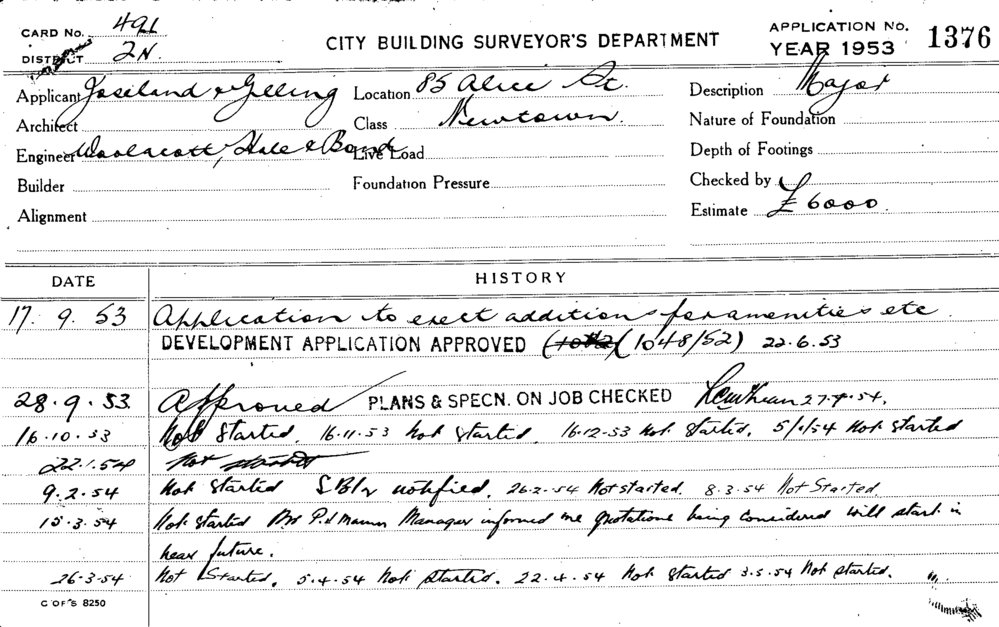 CARD No. 491
APPLICATION No. 1376
CITY BUILDING SURVEYOR'S DEPARTMENT
YEAR 1953
DISTRICT 2N.
Applicant Joseland & Gilling Location 85 Alice St. Description Major
Architect Class Newtown. Nature of Foundation
Engineer Woolacott, Hale & Bond Live Load Depth of Footings
Builder Foundation Pressure Checked by
Alignment Estimate £6000.
DATE HISTORY
17. 9. 53 Application to erect additions for amenities etc.
DEVELOPMENT APPLICATION APPROVED (1048/52) 22.6.53
28.9.53. Approved PLANS & SPECN. ON JOB CHECKED 27.4.54.
16.10.53 Not Started. 16.11.53 Not Started. 16.12.53 Not Started. 5/1/54 Not Started
22.1.54 Not started
9.2.54 Not Started notified. 26.2.54 Not started. 8.3.54 Not Started
15.3.54 Not Started Manager informed me quotations being considered will start in
near future.
26.3.54 Not Started. 5.4.54 Not started. 22.4.54 Not Started 3.5.54 Not started.
C OF S 8250